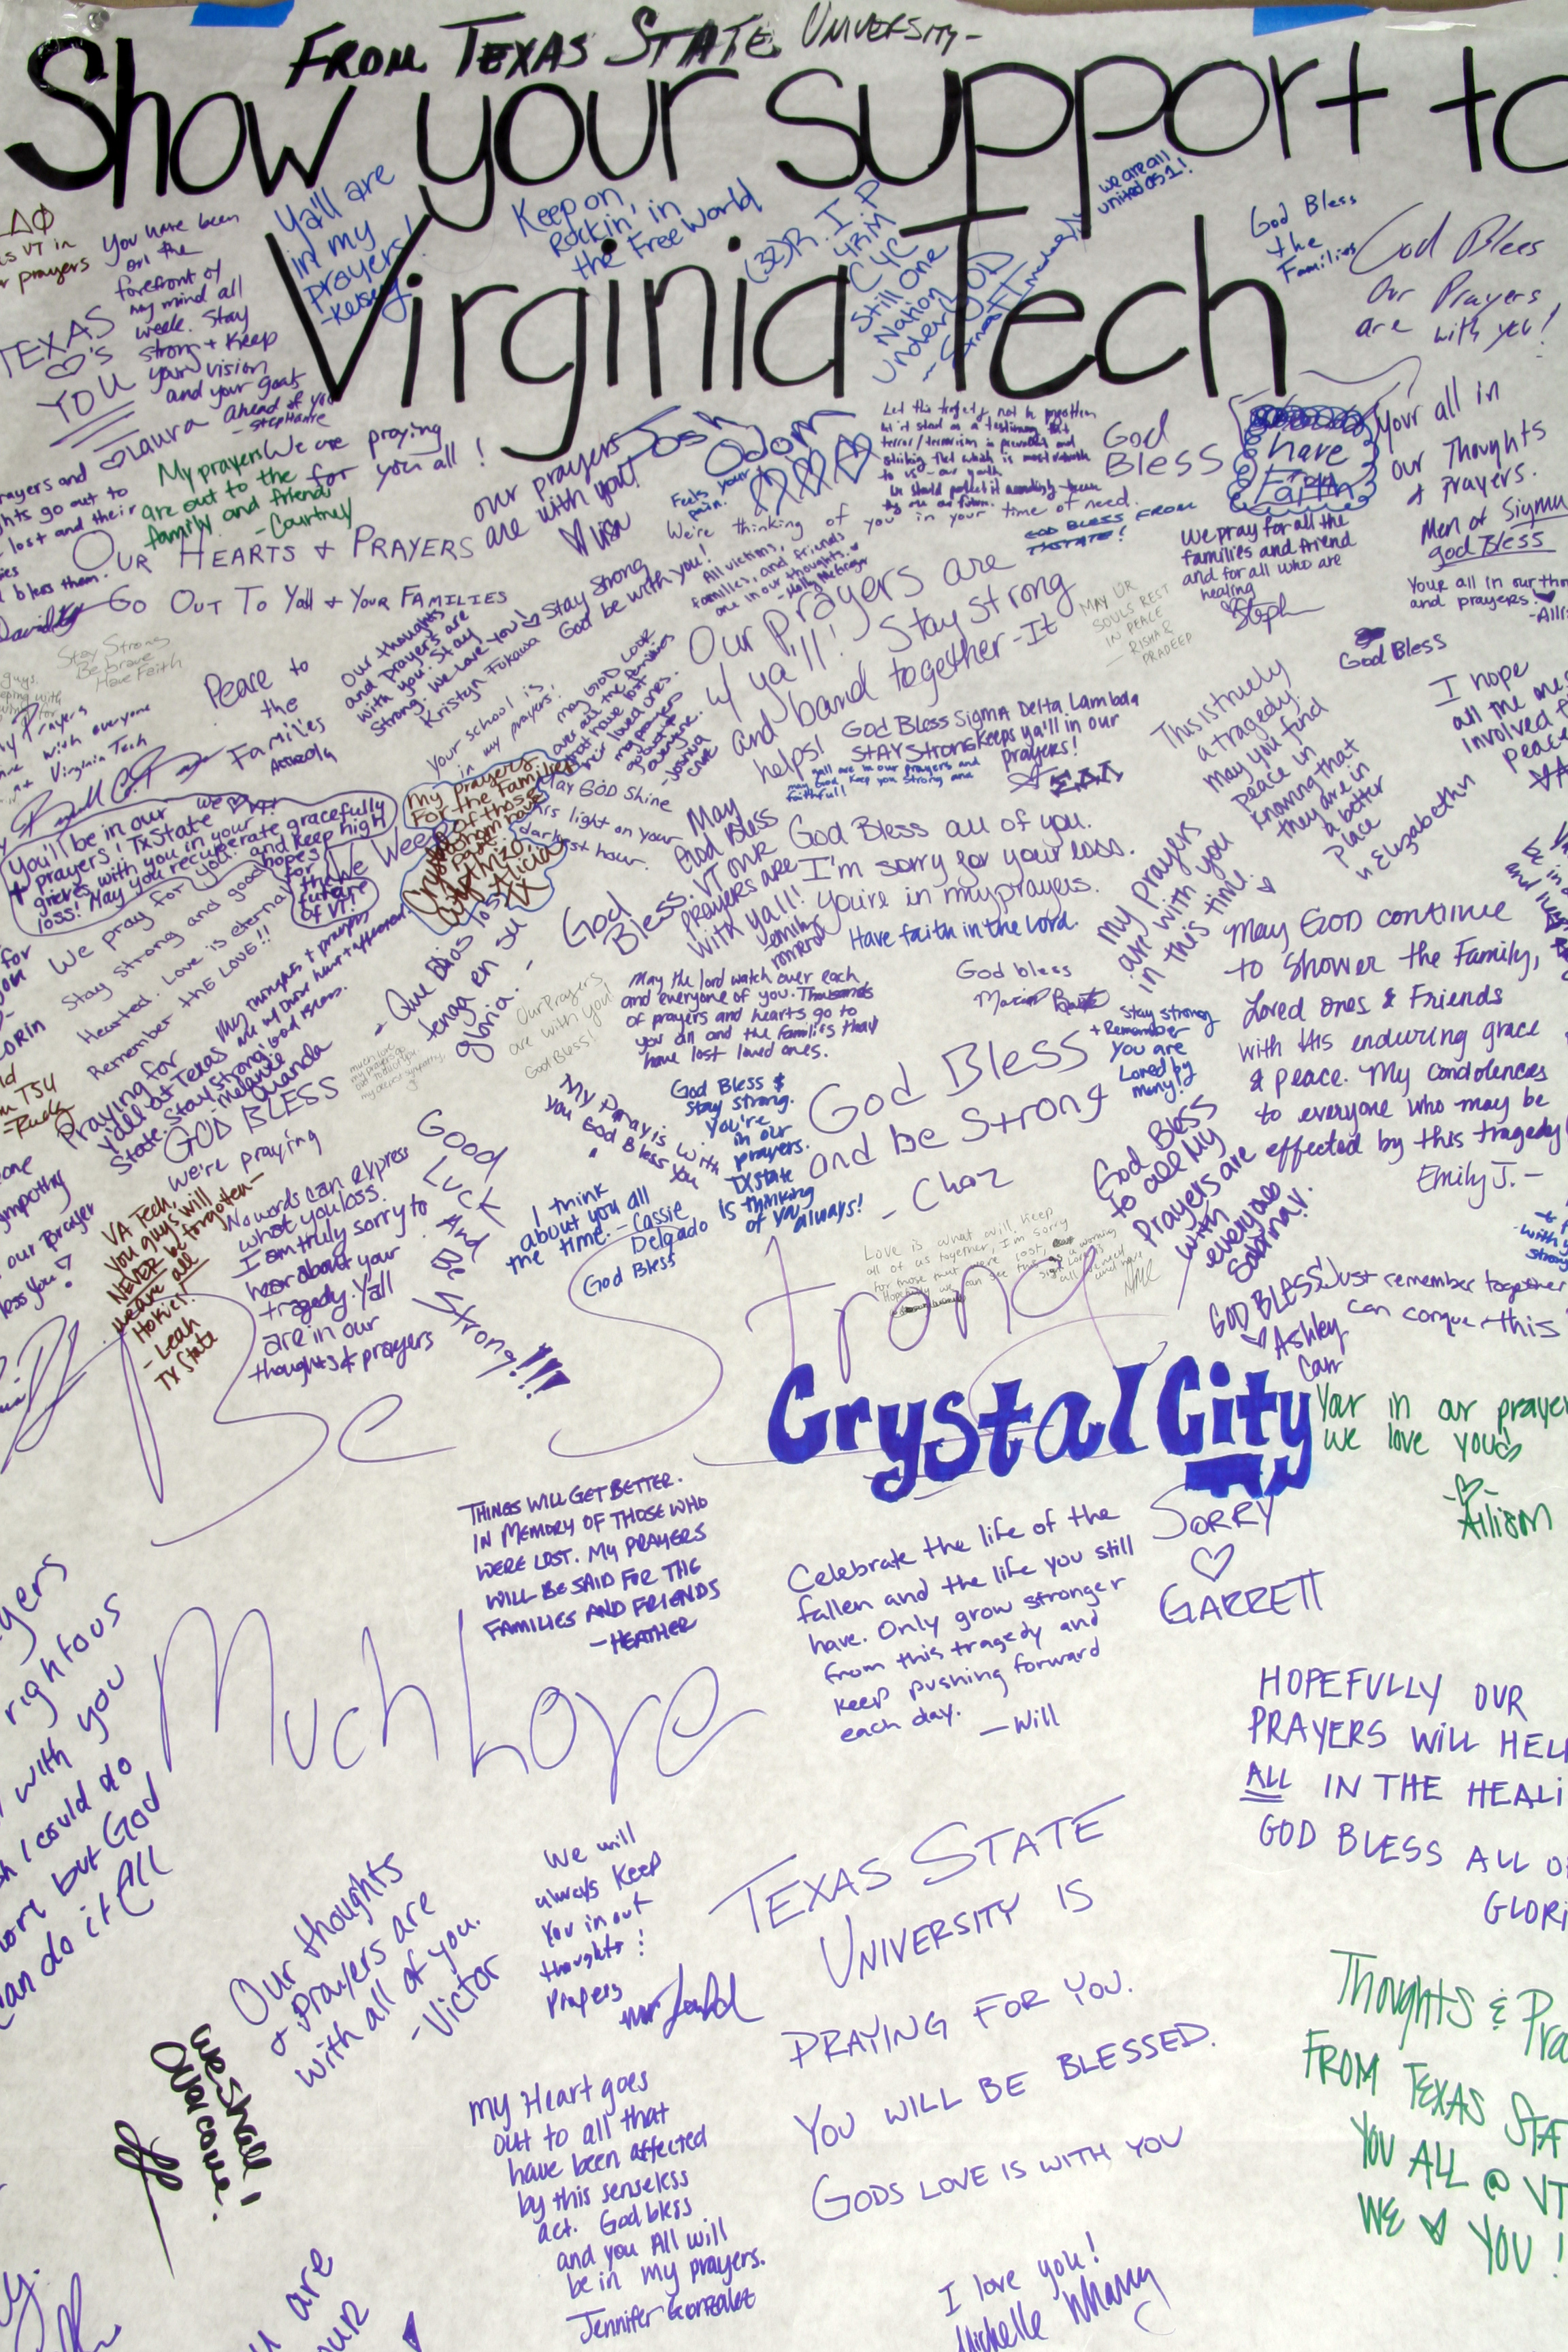 FROM TEXAS STATE UNIVERSITY-
Show your support to
Virginia Tech
ΔΦ
VT in
prayers
You have been
on the
forefront of
my mind all
week. Stay
strong + keep
your vision
and your goat
ahead of you
- Stephanie
Ya'll are
in my
prayers!
-Kelsey
Keep on,
Rockin' in
the Free World
(32) R.I.P
Still One
Nation
under GOD
we are all
united as 1!
God Bless
the
Families
God Blees
Our Prayers
are with you!
TEXAS
♡'s
YOU
♡Laura
My prayers
are out to the
family and friend
-Courtney
We are praying
for you all!
our prayers
are with you!
♡ Lisa
Josh
Odom
Feels your
pain.
God
Bless
have
Faith
Your all in
our Thoughts
& Prayers.
Men of Sigma
god Bless
rayers and
hts go out to
lost and their
bless them.
OUR HEARTS & PRAYERS
GO OUT TO Yall & YOUR FAMILIES
We're thinking of
you in your time of need.
GOD BLESS FROM
TXSTATE!
We pray for all the
families and friend
and for all who are
healing
♡Steph
Your all in our tho
and prayers.♡
-Alli
Stay Strong
Be brave
Have Faith
Peace to
the
Families
Our thoughts
and prayers are
with you. Stay
strong. We love you!
Kristyn Fukawa
♡ Stay strong
God be with you!
All victims,
families, and friends
are in our thoughts.
-Molly Metzger
Our Prayers are
w/ ya'll! Stay strong
and band together-It
helps!
MAY UR
SOULS REST
IN PEACE
- RISHA &
PRADEEP
God Bless
Your school is
in my prayers!
may GOD LOOK
over all the families
that have lost
their loved ones.
my prayers
go out to
everyone.
God Bless SIGMA Delta Lambda
STAY STRONG keeps ya'll in our
prayers!
ΣΔΛ
yall are in our prayers and
may God keep you strong and
faithful!
This is truely
a tragedy.
May you find
peace in
knowing that
they are in
a better
place
♡ Elizabeth
I hope
all the ones
involved f
peace
y Prayers
with everyone
at Virginia Tech
we ♡ VT!
You'll be in our
prayers! TxState
+ grieves with you in your
loss! May you recuperate gracefully
and keep high
hopes
for
the
future
of VT!
My prayers
For the families
of those
whom have
past
Alicia
XX
May GOD Shine
His light on your
darkest hour.
May
God Bless
VT our
prayers are
with yall!
emily
romero
God Bless all of you.
I'm sorry for your loss.
you're in my prayers.
Have faith in the Lord.
My prayers
are with you
in this time.
We pray for you.
Stay strong and good
Hearted. Love is eternal
Remember the LOVE!!
We Weep
- Que Dios los
tenga en su
gloria. -
God
Bless
Our Prayers
are with you!
God Bless!
May the lord watch over each
and everyone of you. Thousands
of prayers and hearts go to
you all and the families that
have lost loved ones.
God bless
Stay strong
+ Remember
You are
Loved by
many!
May GOD continue
to shower the Family,
Loved ones & Friends
with His enduring grace
& peace. My condolences
to everyone who may be
effected by this tragedy
Emily J. -
Praying for
y'all at Texas
State. Stay strong!
- Melanie
My thoughts & prayers
Amanda
GOD BLESS
We're praying
My Pray is With
You God Bless You
God Bless $
stay strong.
You're
in our
prayers.
TXState
is thinking
of you
always!
God Bless
and be Strong
- Chaz
God Bless
to all My
Prayers are
with
everyone
Sabrina!
VA Tech,
You guys will
NEVER be forgotten-
We are all
Hokies!
- Leah
TX State
No words can express
what you loss.
I am truly sorry to
hear about your
tragedy. Yall
are in our
thoughts & prayers
Good
Luck
And
Be
Strong!!!!
I think
about you all
the time. - Cassie
Delgado
God Bless
Love is what will keep
all of us together, I'm sorry
for those that were lost,
GOD BLESS
♡ Ashley
Carr
Just remember together
can conquer this
Be Strong
Crystal City
Your in our prayer
we love you
Allison
THINGS WILL GET BETTER.
IN MEMORY OF THOSE WHO
WERE LOST. MY PRAYERS
WILL BE SAID FOR THE
FAMILIES AND FRIENDS
- HEATHER
Celebrate the life of the
fallen and the life you still
have. Only grow stronger
from this tragedy and
keep pushing forward
each day.
- Will
SORRY
♡
GARRETT
yers
rightous
with you
I could do
more but God
can do it All
Much Love
HOPEFULLY OUR
PRAYERS WILL HEL
ALL IN THE HEALI
GOD BLESS ALL O
GLORI
Our thoughts
+ prayers are
with all of you.
-Victor
We will
always keep
You in out
thoughts!
Prayers
TEXAS STATE
UNIVERSITY IS
PRAYING FOR YOU.
YOU WILL BE BLESSED.
GODS LOVE IS WITH YOU
Thoughts & Pra
FROM TEXAS STA
YOU ALL @ VT
WE ♡ YOU!
We Shall
Overcome!
my Heart goes
out to all that
have been affected
by this senseless
act. God bless
and you All will
be in my prayers.
Jennifer Gonzalez
I love you!
Michelle
are